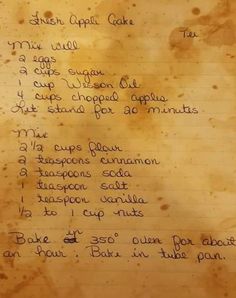 Fresh Apple Cake
Mix well
2 eggs
2 cups sugar
1 cup Wesson Oil
4 cups chopped apples
Let stand for 20 minutes
Mix
2 1/2 cups flour
2 teaspoons cinnamon
2 teaspoons soda
1 teaspoon salt
1 teaspoon vanilla
1/2 to 1 cup nuts
Bake in 350° oven for about
an hour. Bake in tube pan.